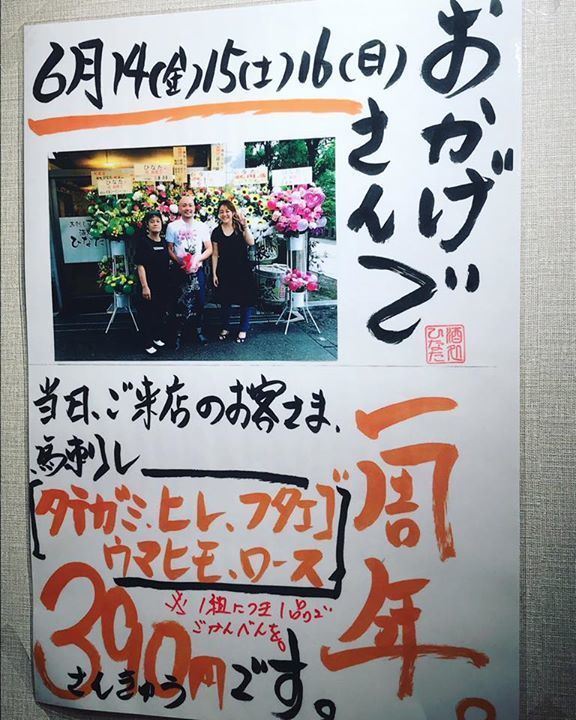 おかげで
さんで
6月14(金)15(土)16(日)
ひなた
ひなた
酒処
ひなた
一周年。
当日、ご来店のお客さま、
馬刺し
タテガミ、ヒレ、フタエゴ
ウマヒモ、ロース
※1組につき1品で
ごかんべんを。
390円です。
さんきゅう